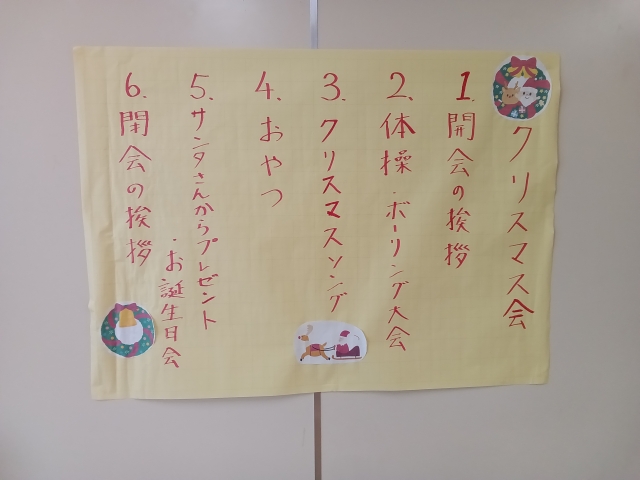 クリスマス会
1. 開会の挨拶
2. 体操・ボーリング大会
3. クリスマスソング
4. おやつ
5. サンタさんからプレゼント
・お誕生日会
6. 閉会の挨拶